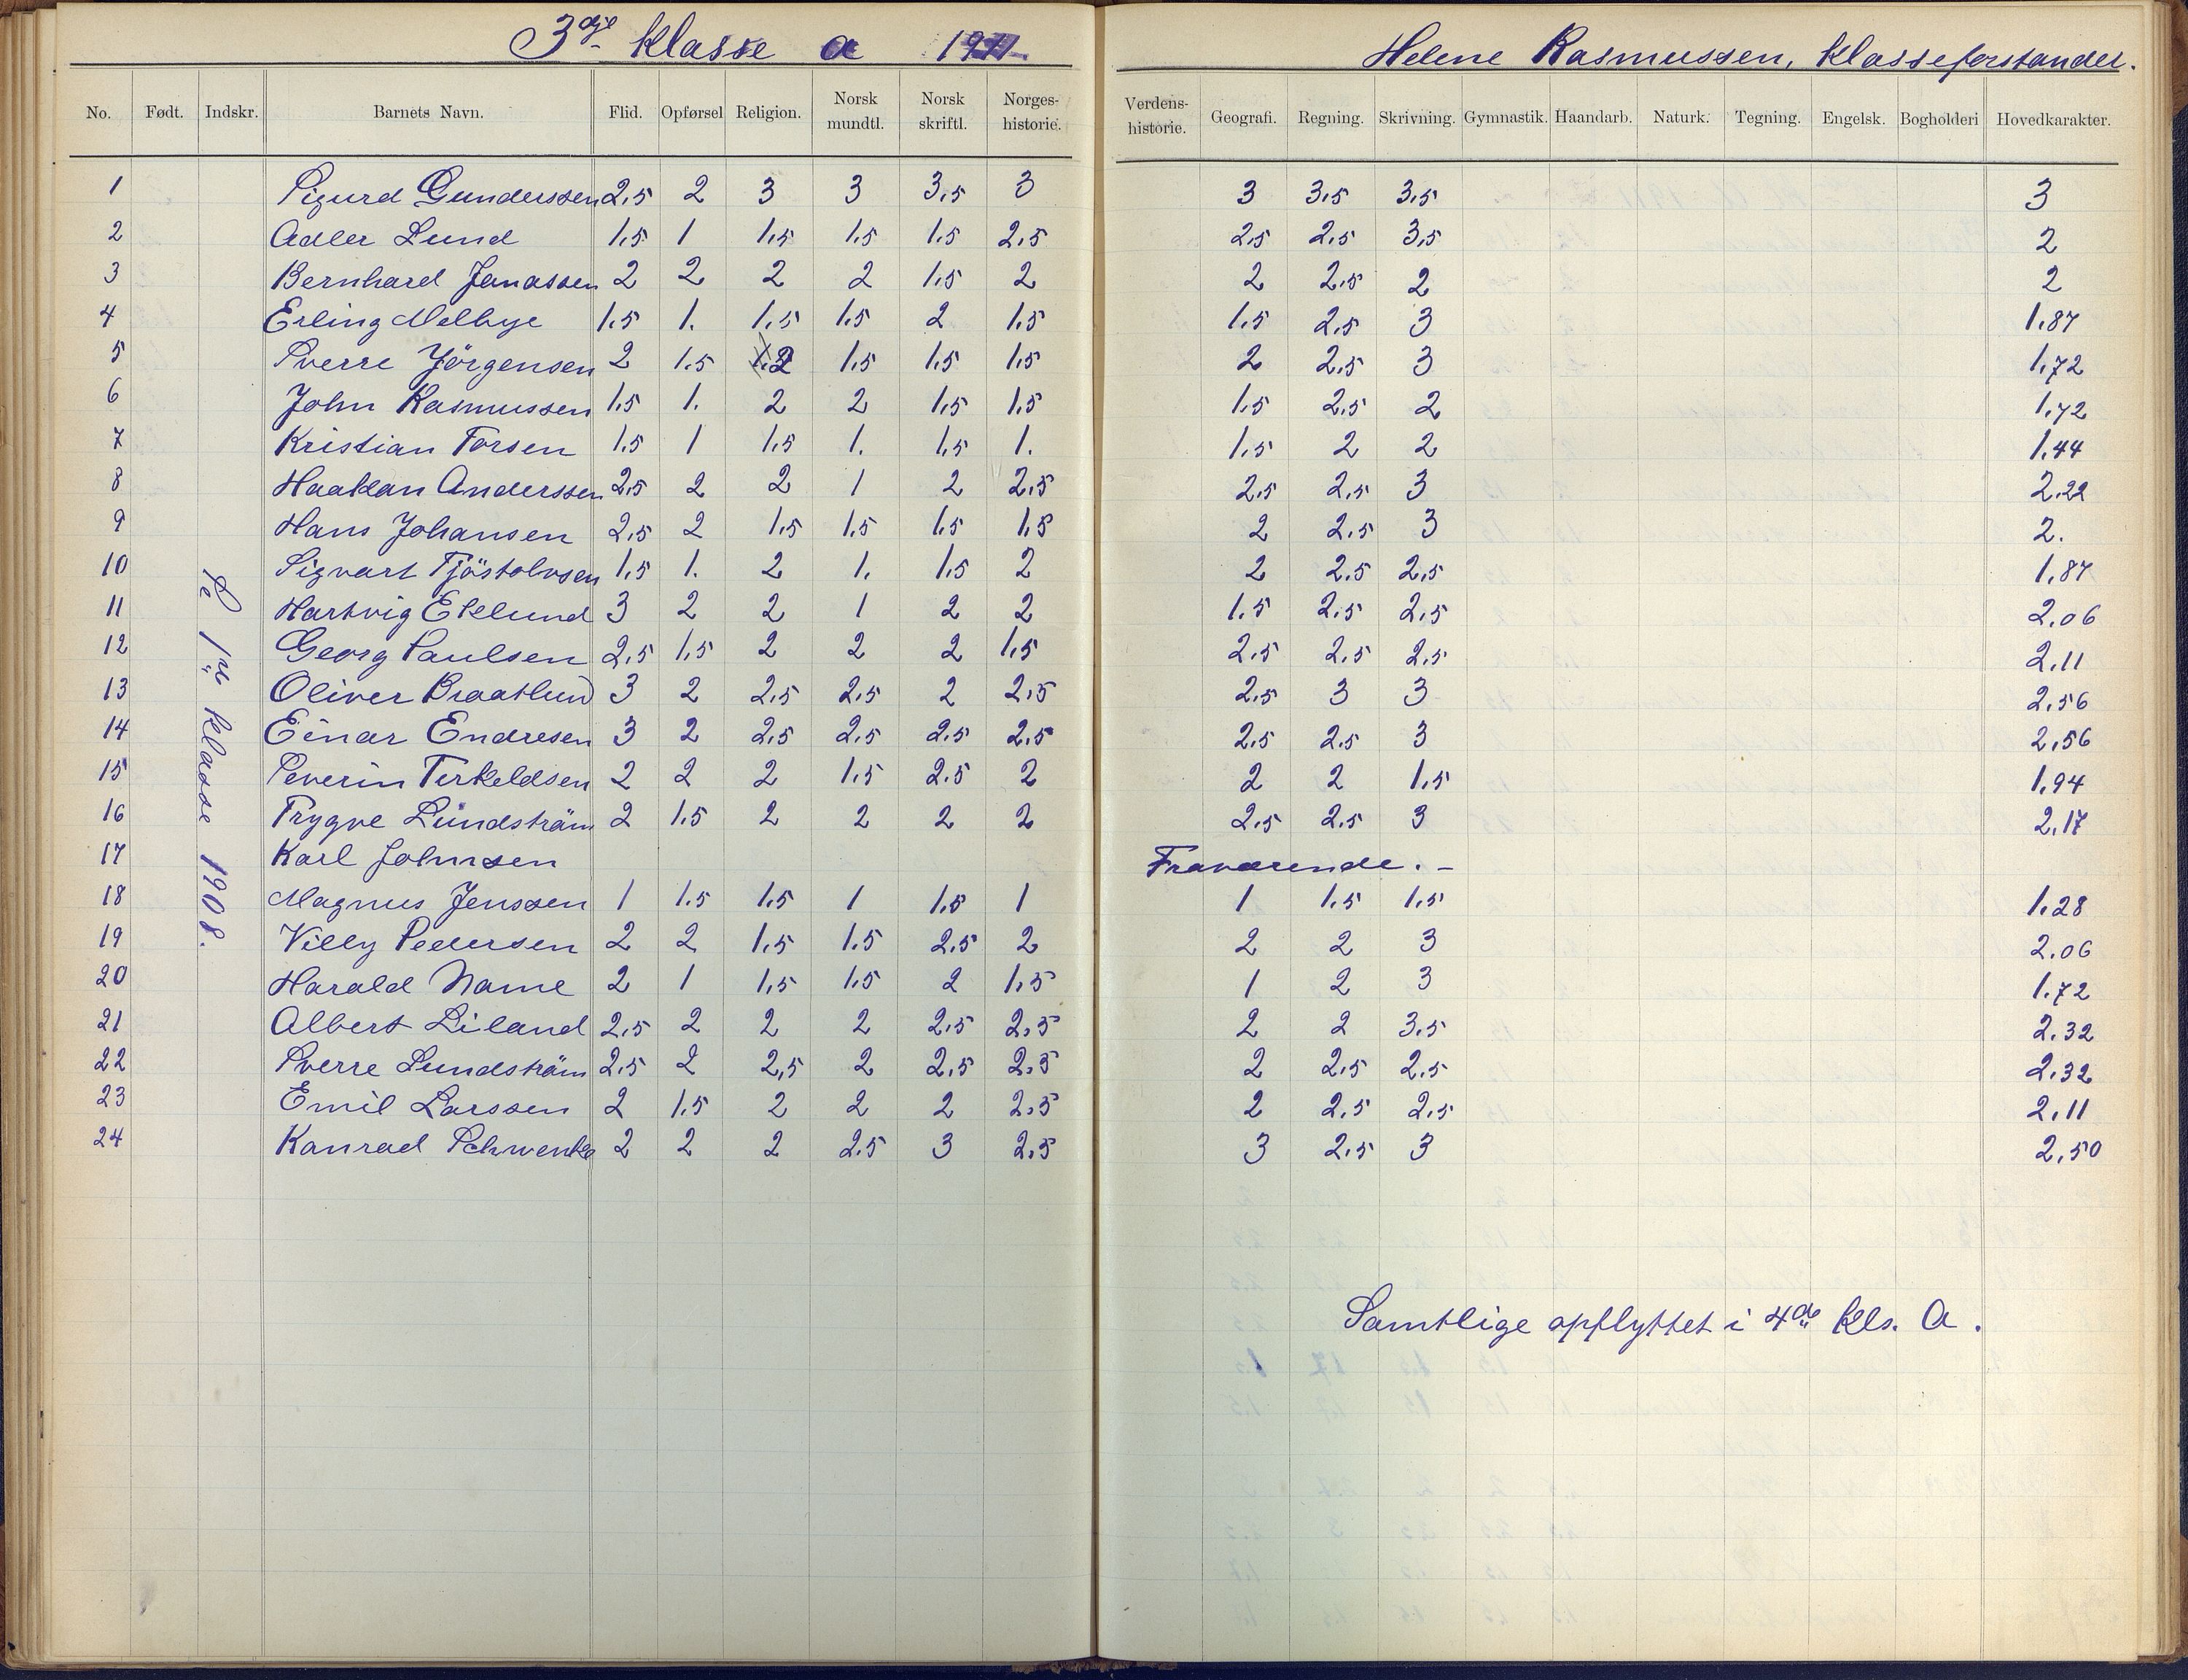 3dje Klasse a 1911.
Helene Rasmussen, Klasseforstander.
No. Født. Indskr. Barnets Navn. Flid. Opførsel Religion. Norsk mundtl. Norsk skriftl. Norges-historie. Verdens-historie. Geografi. Regning. Skrivning. Gymnastik. Haandarb. Naturk. Tegning. Engelsk. Bogholderi Hovedkarakter.
Se 1ste Klasse 1908.
1 Sigurd Gunderssen 2,5 2 3 3 3,5 3 3 3,5 3,5 3
2 Adler Lund 1,5 1 1,5 1,5 1,5 2,5 2,5 2,5 3,5 2
3 Bernhard Jonassen 2 2 2 2 1,5 2 2 2,5 2 2
4 Erling Melbye 1,5 1. 1,5 1,5 2 1,5 1,5 2,5 3 1,87
5 Sverre Jörgensen 2 1.5 2 1,5 1,5 1,5 2 2,5 3 1,72
6 John Rasmussen 1,5 1. 2 2 1,5 1,5 1,5 2,5 2 1,72
7 Kristian Torsen 1,5 1 1,5 1. 1,5 1. 1,5 2 2 1,44
8 Haakon Anderssen 2,5 2 2 1 2 2,5 2,5 2,5 3 2,22
9 Hans Johansen 2,5 2 1,5 1,5 1,5 1,5 2 2,5 3 2.
10 Sigvart Tjöstolvsen 1,5 1. 2 1. 1,5 2 2 2.5 2,5 1,87
11 Hartvig Eklund 3 2 2 1 2 2 1,5 2,5 2,5 2,06
12 Georg Paulsen 2,5 1,5 2 2 2 1,5 2,5 2,5 2,5 2,11
13 Oliver Braatlund 3 2 2,5 2,5 2 2,5 2,5 3 3 2,56
14 Einar Endresen 3 2 2,5 2,5 2,5 2,5 2,5 2,5 3 2,56
15 Severin Terkeldsen 2 2 2 1,5 2,5 2 2 2 1,5 1,94
16 Trygve Lundström 2 1,5 2 2 2 2 2,5 2,5 3 2,17
17 Karl Johnsen Fraværende. -
18 Magnus Jenssen 1 1.5 1,5 1 1,5 1 1 1,5 1,5 1,28
19 Villy Pedersen 2 2 1,5 1,5 2,5 2 2 2 3 2,06
20 Harald Name 2 1 1,5 1,5 2 1,5 1 2 3 1.72
21 Albert Liland 2,5 2 2 2 2,5 2,5 2 2 3,5 2,32
22 Sverre Lundström 2,5 2 2,5 2 2,5 2,5 2 2,5 2,5 2,32
23 Emil Larssen 2 1,5 2 2 2 2,5 2 2,5 2,5 2,11
24 Konrad Schwenke 2 2 2 2,5 3 2,5 3 2,5 3 2,50
Samtlige opflyttet i 4de Kls. A.